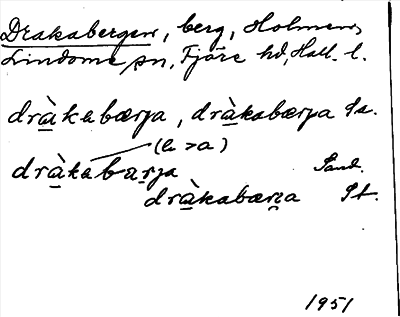 Drakabergen, berg, Holmen,
Lindome sn, Fjäre hd, Hall. l.
dràkabærja, dràkabærja Sa.
(æ > a)
dràkabarja Sand.
dràkabærja St.
1951